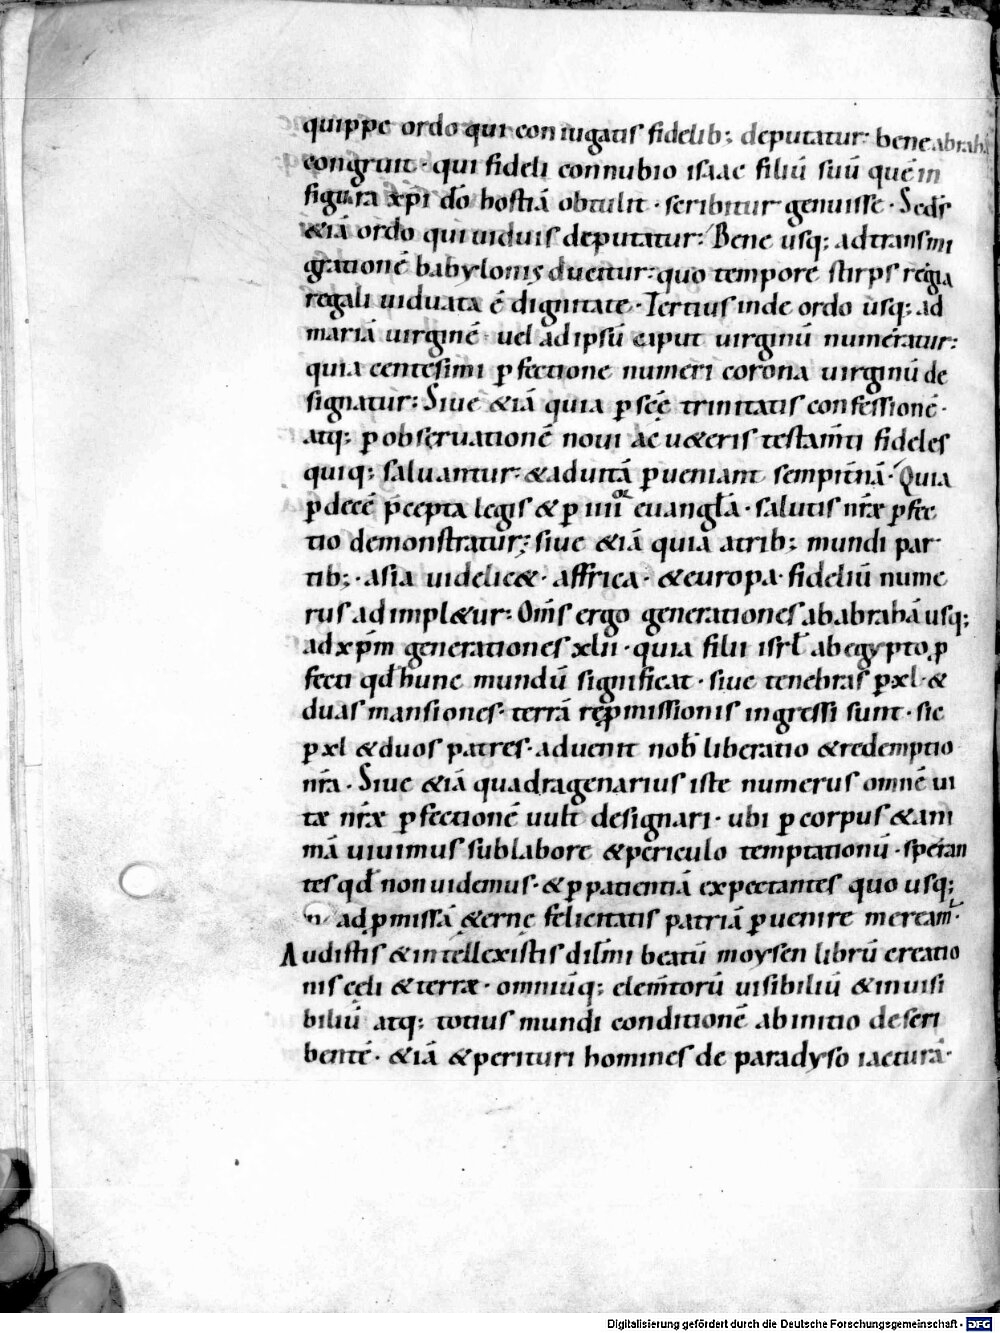 quippe ordo qui coniugatis fidelib; deputatur. bene abrahę
congruit · qui fideli connubio isaac filiū suū quē in
figura xp̄i dō hostiā obtulit · scribitur genuisse · Seds
&iā ordo qui uiduis deputatur: Bene usq; ad transmi
grationē babylonis ducitur: quo tempore stirps regia
regali uiduata ē dignitate · Tertius inde ordo usq; ad
mariā uirginē · uel ad ipsū caput uirginū numeratur:
quia centesimi ꝑfectione numeri corona uirginū de
signatur: Siue &iā quia ꝑ scę̄ trinitatis confessionē ·
atq; ꝑ obseruationē noui ac u&eris testam̄ti fideles
quiq; saluantur · & ad uitā ꝑueniant sempit̄nā · Quia
ꝑ decē p̄cepta legis & ꝑ iiii or euangl̄a · salutis nr̄æ ꝑfec
tio demonstratur; siue &iā quia a trib; mundi par
tib; · asia uidelic& · affrica · & europa · fideliū nume
rus adimpl&ur: Om̄s ergo generationes ab abrahā usq;
ad xp̄m generationes xlii · quia filii isrl̄ ab egypto ꝓ
fecti qd̄ hunc mundū significat · siue tenebras ꝑ xl · &
duas mansiones · terrā rep̱missionis ingressi sunt · sic
ꝑ xl & duos patres · aduenit nob̄ liberatio & redemptio
nr̄a · Siue &iā quadragenarius iste numerus omnē ui
tæ nr̄æ ꝑfectionē uult designari · ubi ꝑ corpus & ani
mā uiuimus sub labore & periculo temptationū · speran
tes qd̄ non uidemus · & ꝑ patientiā expectantes quo usq;
ad ꝓmissā &erne felicitatis patriā ꝑuenire meream̄ ·
Audistis & intellexistis dilm̄i beatū moysen librū creatio
nis cęli & terræ · omniūq; elem̄torū uisibiliū & inuisi
biliū atq; totius mundi conditionē ab initio descri
bentē · &iā & perituri homines de paradyso iacturā ·
Digitalisierung gefördert durch die Deutsche Forschungsgemeinschaft - DFG